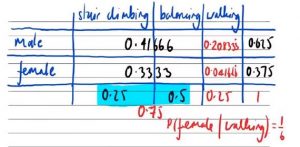 stair climbing balancing walking
Male 0.41666 0.208333 0.625
female 0.3333 0.041666 0.375
0.25 0.5 0.25 1
0.75
P(female | walking) = 1/6